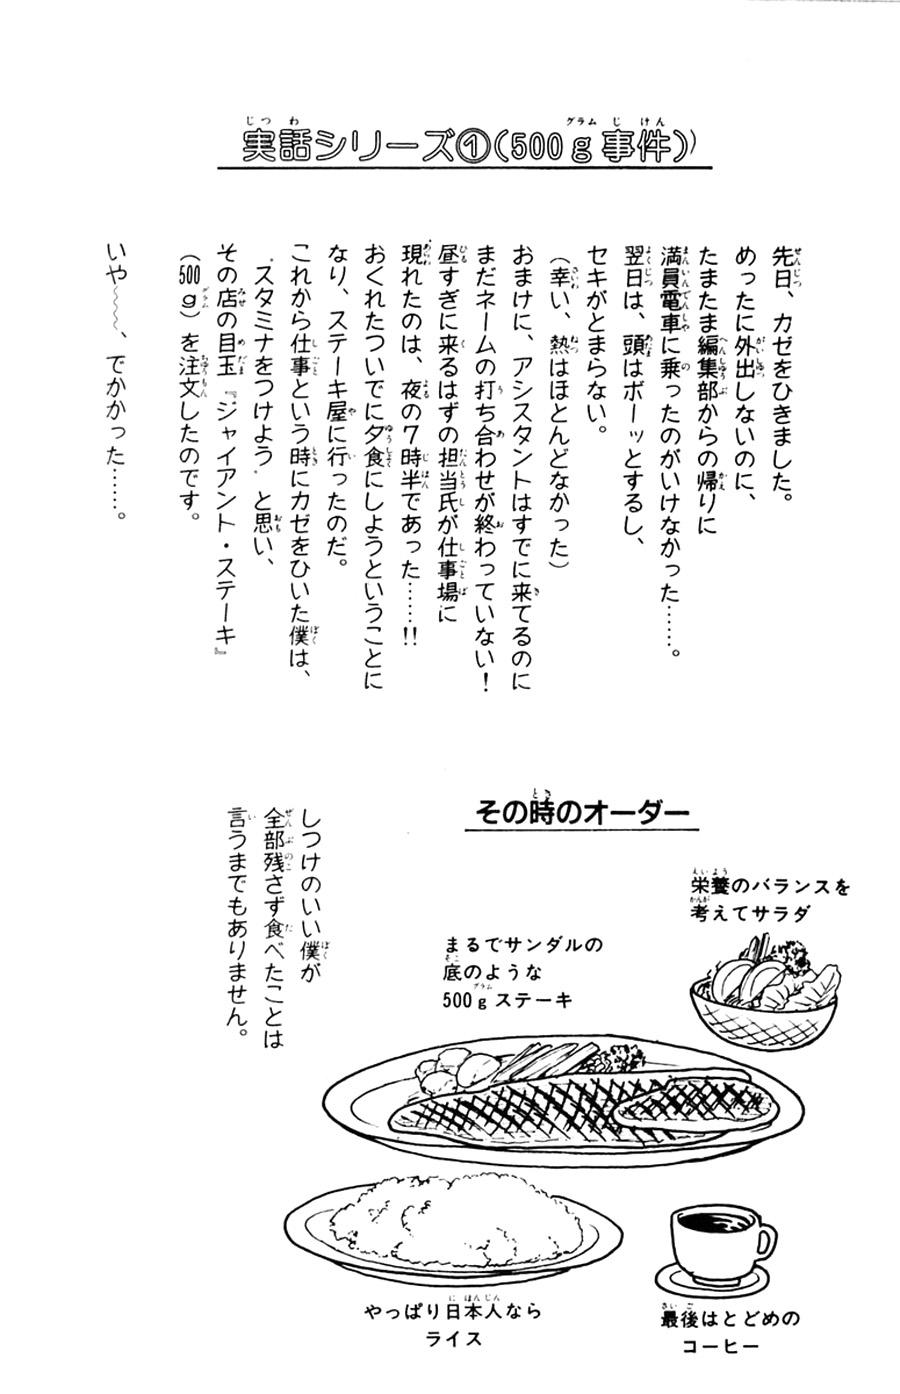 実話シリーズ①(500g事件)
先日、カゼをひきました。
めったに外出しないのに、
たまたま編集部からの帰りに
満員電車に乗ったのがいけなかった……。
翌日は、頭はボーッとするし、
セキがとまらない。
(幸い、熱はほとんどなかった)
おまけに、アシスタントはすでに来てるのに
まだネームの打ち合わせが終わっていない!
昼すぎに来るはずの担当氏が仕事場に
現れたのは、夜の7時半であった……!!
おくれたついでに夕食にしようということに
なり、ステーキ屋に行ったのだ。
これから仕事という時にカゼをひいた僕は、
“スタミナをつけよう”と思い、
その店の目玉『ジャイアント・ステーキ』
(500g)を注文したのです。
いや〜〜〜、でかかった……。
その時のオーダー
栄養のバランスを
考えてサラダ
まるでサンダルの
底のような
500gステーキ
やっぱり日本人なら
ライス
最後はとどめの
コーヒー
しつけのいい僕が
全部残さず食べたことは
言うまでもありません。